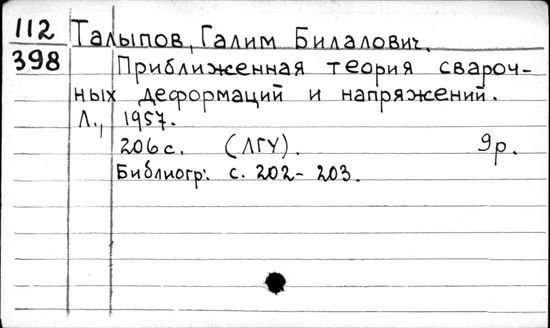 112 Талыпов, Галим Билалович.
398 Приближенная теория свароч-
ных деформаций и напряжений.
Л., 1957.
206 с. (ЛГУ). 9р.
Библиогр: с. 202-203.